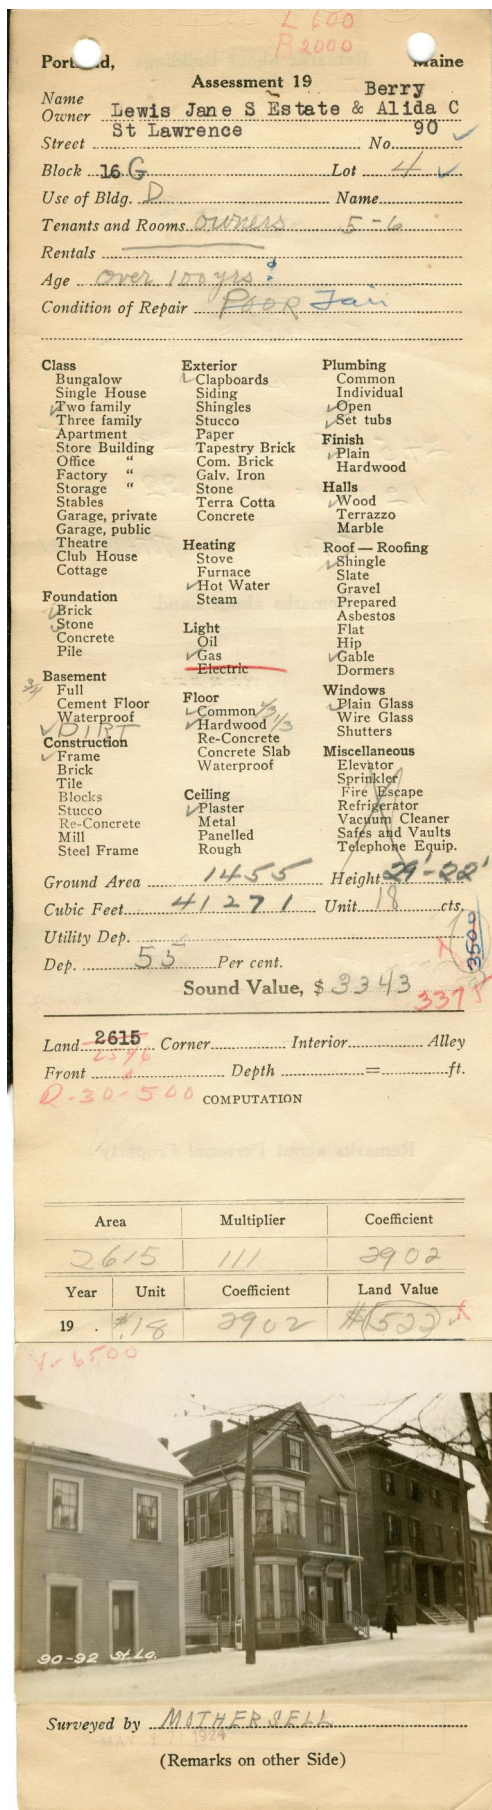 L 600
B 2000
Portland, Maine
Assessment 19
Name Berry
Owner Lewis Jane S Estate & Alida C
Street St Lawrence No. 90
Block 16 G Lot 4
Use of Bldg. D Name
Tenants and Rooms owners 5-6
Rentals
Age over 100 yrs ?
Condition of Repair POOR Fair
Class
Bungalow
Single House
Two family
Three family
Apartment
Store Building
Office "
Factory "
Storage "
Stables
Garage, private
Garage, public
Theatre
Club House
Cottage
Foundation
Brick
Stone
Concrete
Pile
Basement
3/4 Full
Cement Floor
Waterproof
DIRT
Construction
Frame
Brick
Tile
Blocks
Stucco
Re-Concrete
Mill
Steel Frame
Exterior
Clapboards
Siding
Shingles
Stucco
Paper
Tapestry Brick
Com. Brick
Galv. Iron
Stone
Terra Cotta
Concrete
Heating
Stove
Furnace
Hot Water
Steam
Light
Oil
Gas
Electric
Floor
Common 2/3
Hardwood 1/3
Re-Concrete
Concrete Slab
Waterproof
Ceiling
Plaster
Metal
Panelled
Rough
Plumbing
Common
Individual
Open
Set tubs
Finish
Plain
Hardwood
Halls
Wood
Terrazzo
Marble
Roof — Roofing
Shingle
Slate
Gravel
Prepared
Asbestos
Flat
Hip
Gable
Dormers
Windows
Plain Glass
Wire Glass
Shutters
Miscellaneous
Elevator
Sprinkler
Fire Escape
Refrigerator
Vacuum Cleaner
Safes and Vaults
Telephone Equip.
Ground Area 1455 Height 29'-22'
Cubic Feet 41271 Unit 18 cts.
Utility Dep. 3500
Dep. 55 Per cent.
Sound Value, $ 3343
3375
Land 2615 Corner Interior Alley
2576
Front Depth = ft.
D-30-500
COMPUTATION
Area Multiplier Coefficient
2615 111 2902
Year Unit Coefficient Land Value
19 . $.18 2902 $522
V-6500
90-92 St. La.
Surveyed by MOTHERSELL
MAY 17 1924
(Remarks on other Side)